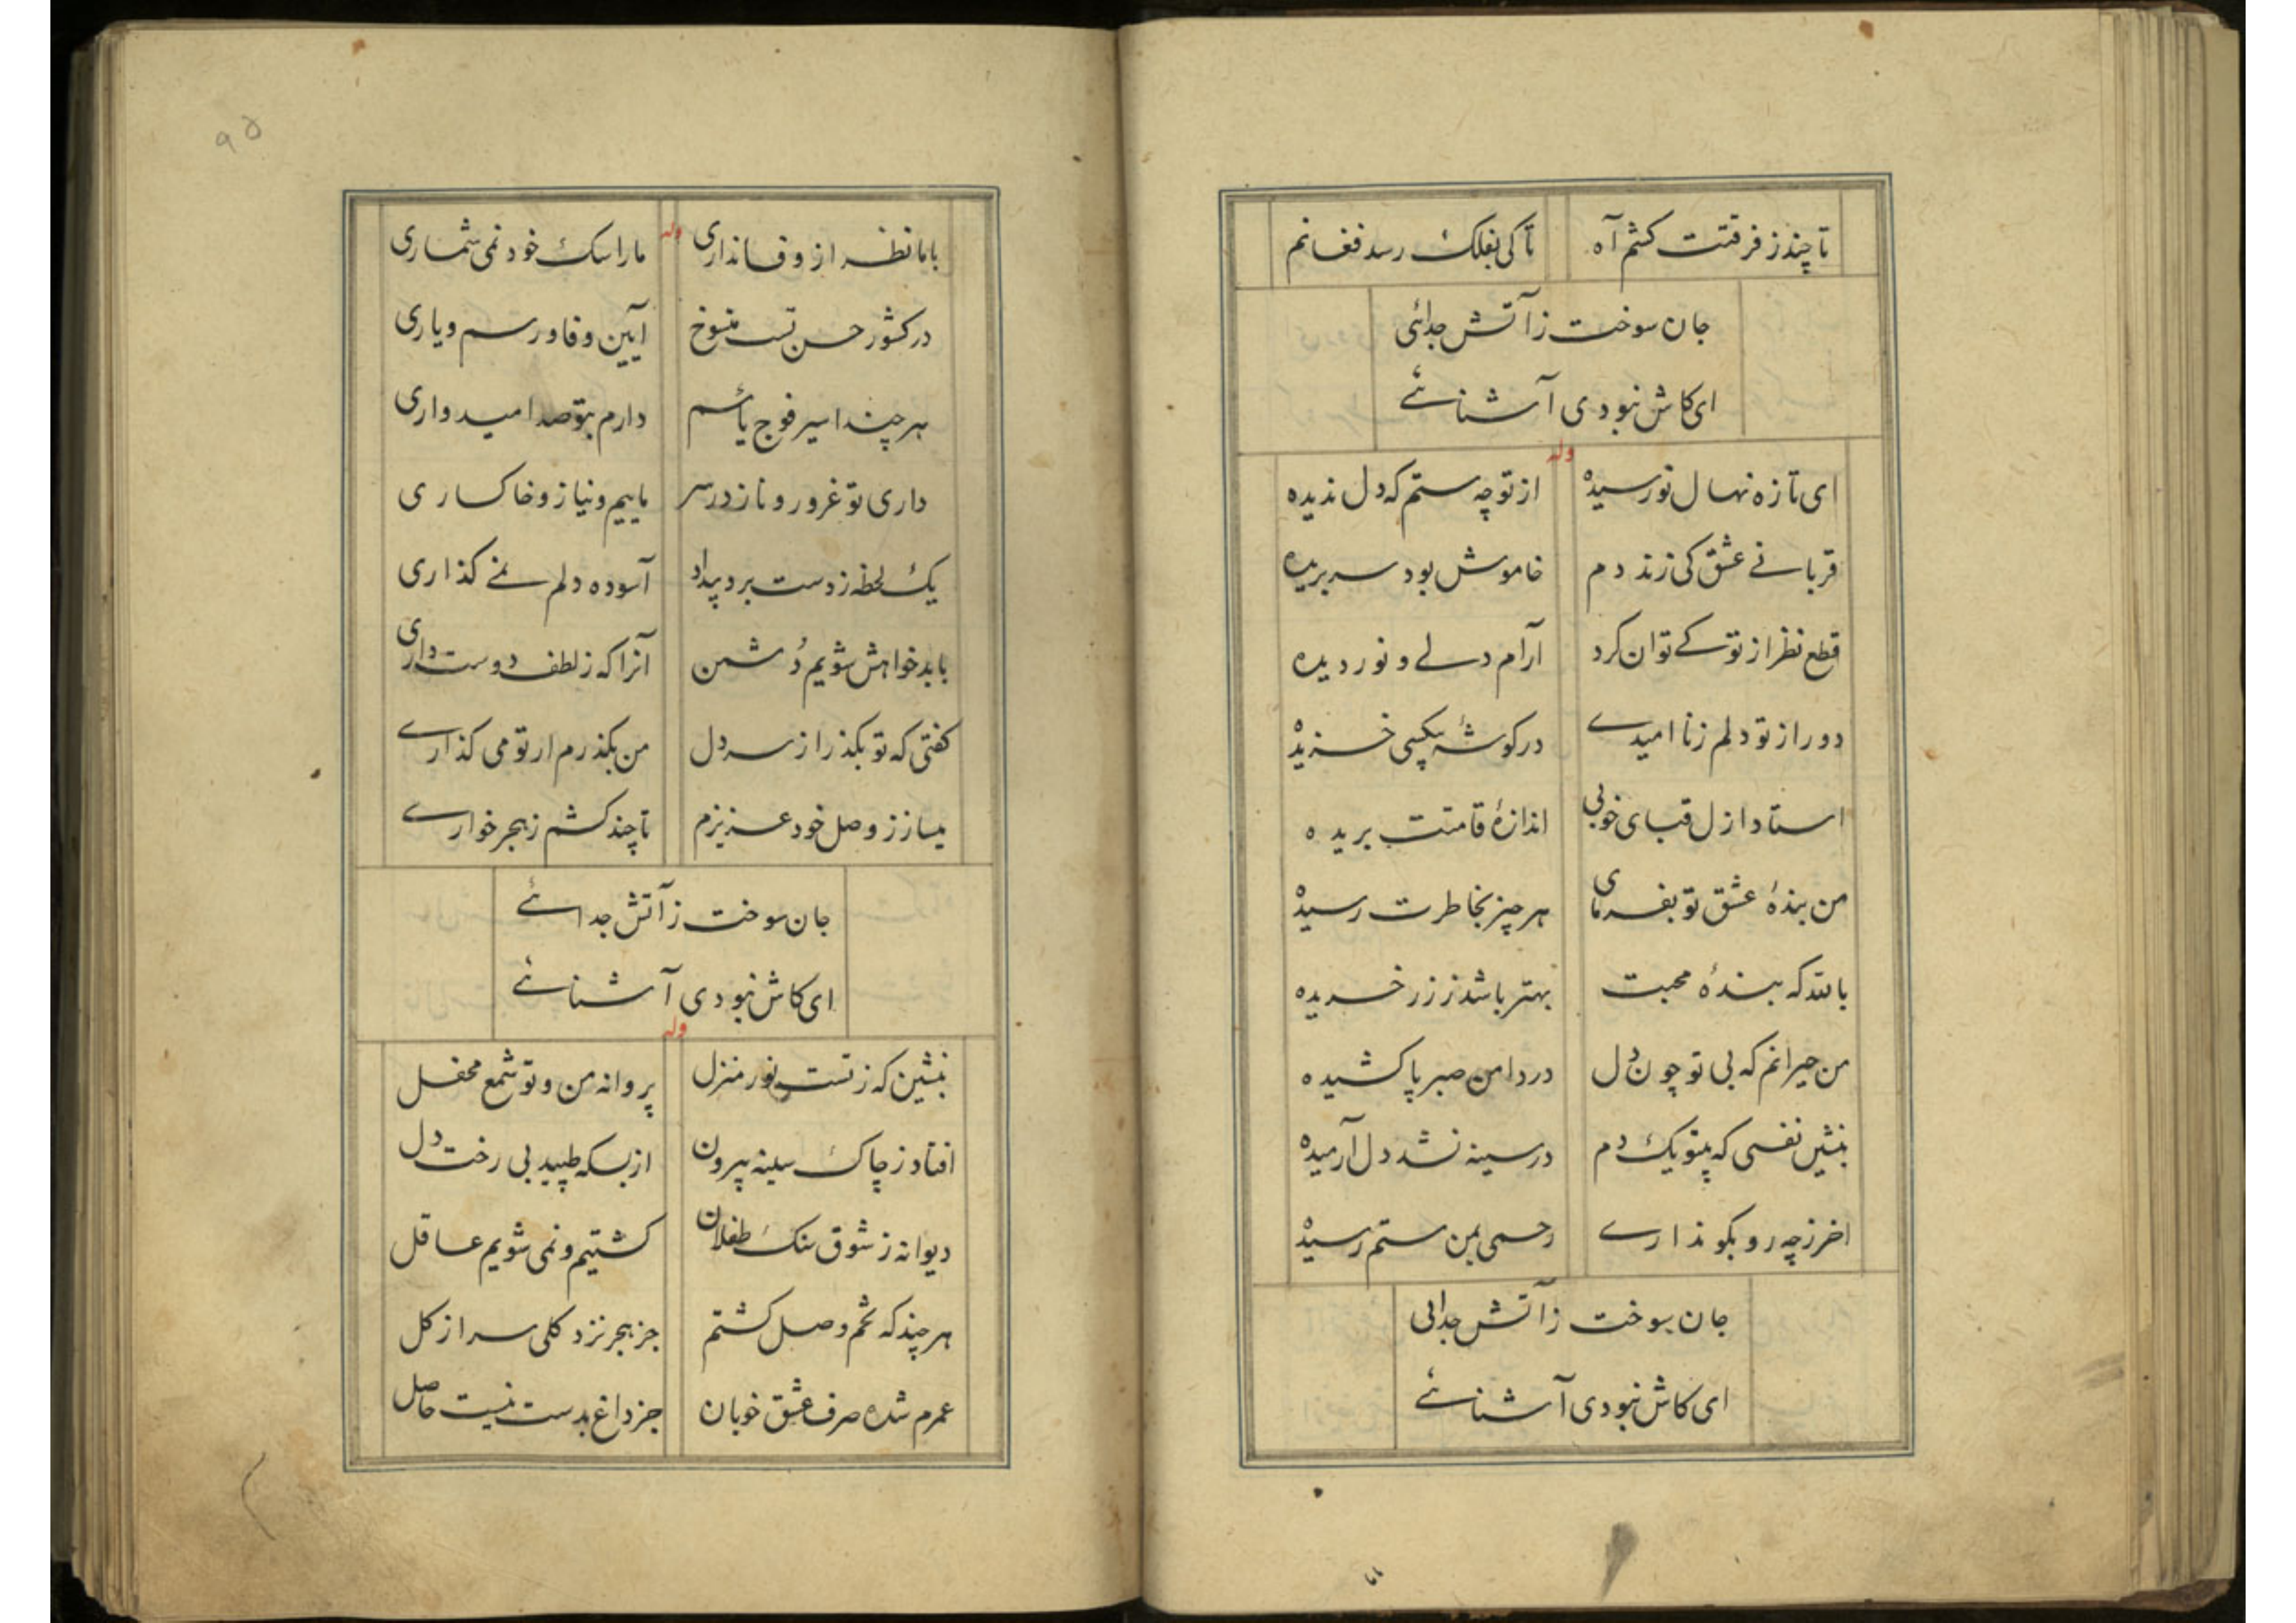 تا چند ز فرقتت کشم آه تا کی بفلک رسد فغانم
جان سوخت ز آتش جدائی
ای کاش نبودی آشنائے
وله
ای تازه نهال نورسیده از تو چه ستم که دل ندیده
قربانے عشق کی زند دم خاموش بود سر بریده
قطع نظر از تو کے توان کرد آرام دلے و نور دیده
دور از تو دلم ز ناامیدے در کوشهٔ بیکسی خزیده
استاد ازل قبای خوبی اندازهٔ قامتت بریده
من بندهٔ عشق تو بفرمای هر چیز بخاطرت رسیده
بالله که بندهٔ محبت بهتر باشد ز زر خریده
من حیرانم که بی تو چون دل در دامن صبر پا کشیده
بنشین نفسی که بیتو یک دم در سینه نشد دل آرمیده
اخر ز چه رو بکو ندارے رحمی بمن ستم رسیده
جان سوخت ز آتش جدائی
ای کاش نبودی آشنائے
۹۵
وله
با ما نظر از وفا نداری ما را سک خود نمی شماری
در کشور حسن تست منسوخ آیین وفا و رسم و یاری
هر چند اسیر فوج یأسم دارم بتو صد امیدواری
داری تو غرور و ناز در سر ماییم و نیاز و خاکساری
یک لحظه ز دست برد بیداد آسوده دلم نمے کذاری
با بدخواهش شویم دشمن آنرا که ز لطف دوست داری
کفتی که تو بکذر از سر دل من بکذرم ار تو می کذارے
میساز ز وصل خود عزیزم تا چند کشم ز هجر خوارے
جان سوخت ز آتش جدائے
ای کاش نبودی آشنائے
وله
بنشین که ز تست نور منزل پروانه من و تو شمع محفل
افتاد ز چاک سینه بیرون از بسکه طپید بی رخت دل
دیوانه ز شوق سنک طفلان کشتیم و نمی شویم عاقل
هر چند که تخم وصل کشتم جز هجر نزد کلی سر از کل
عمرم شده صرف عشق خوبان جز داغ بدست نیست حاصل